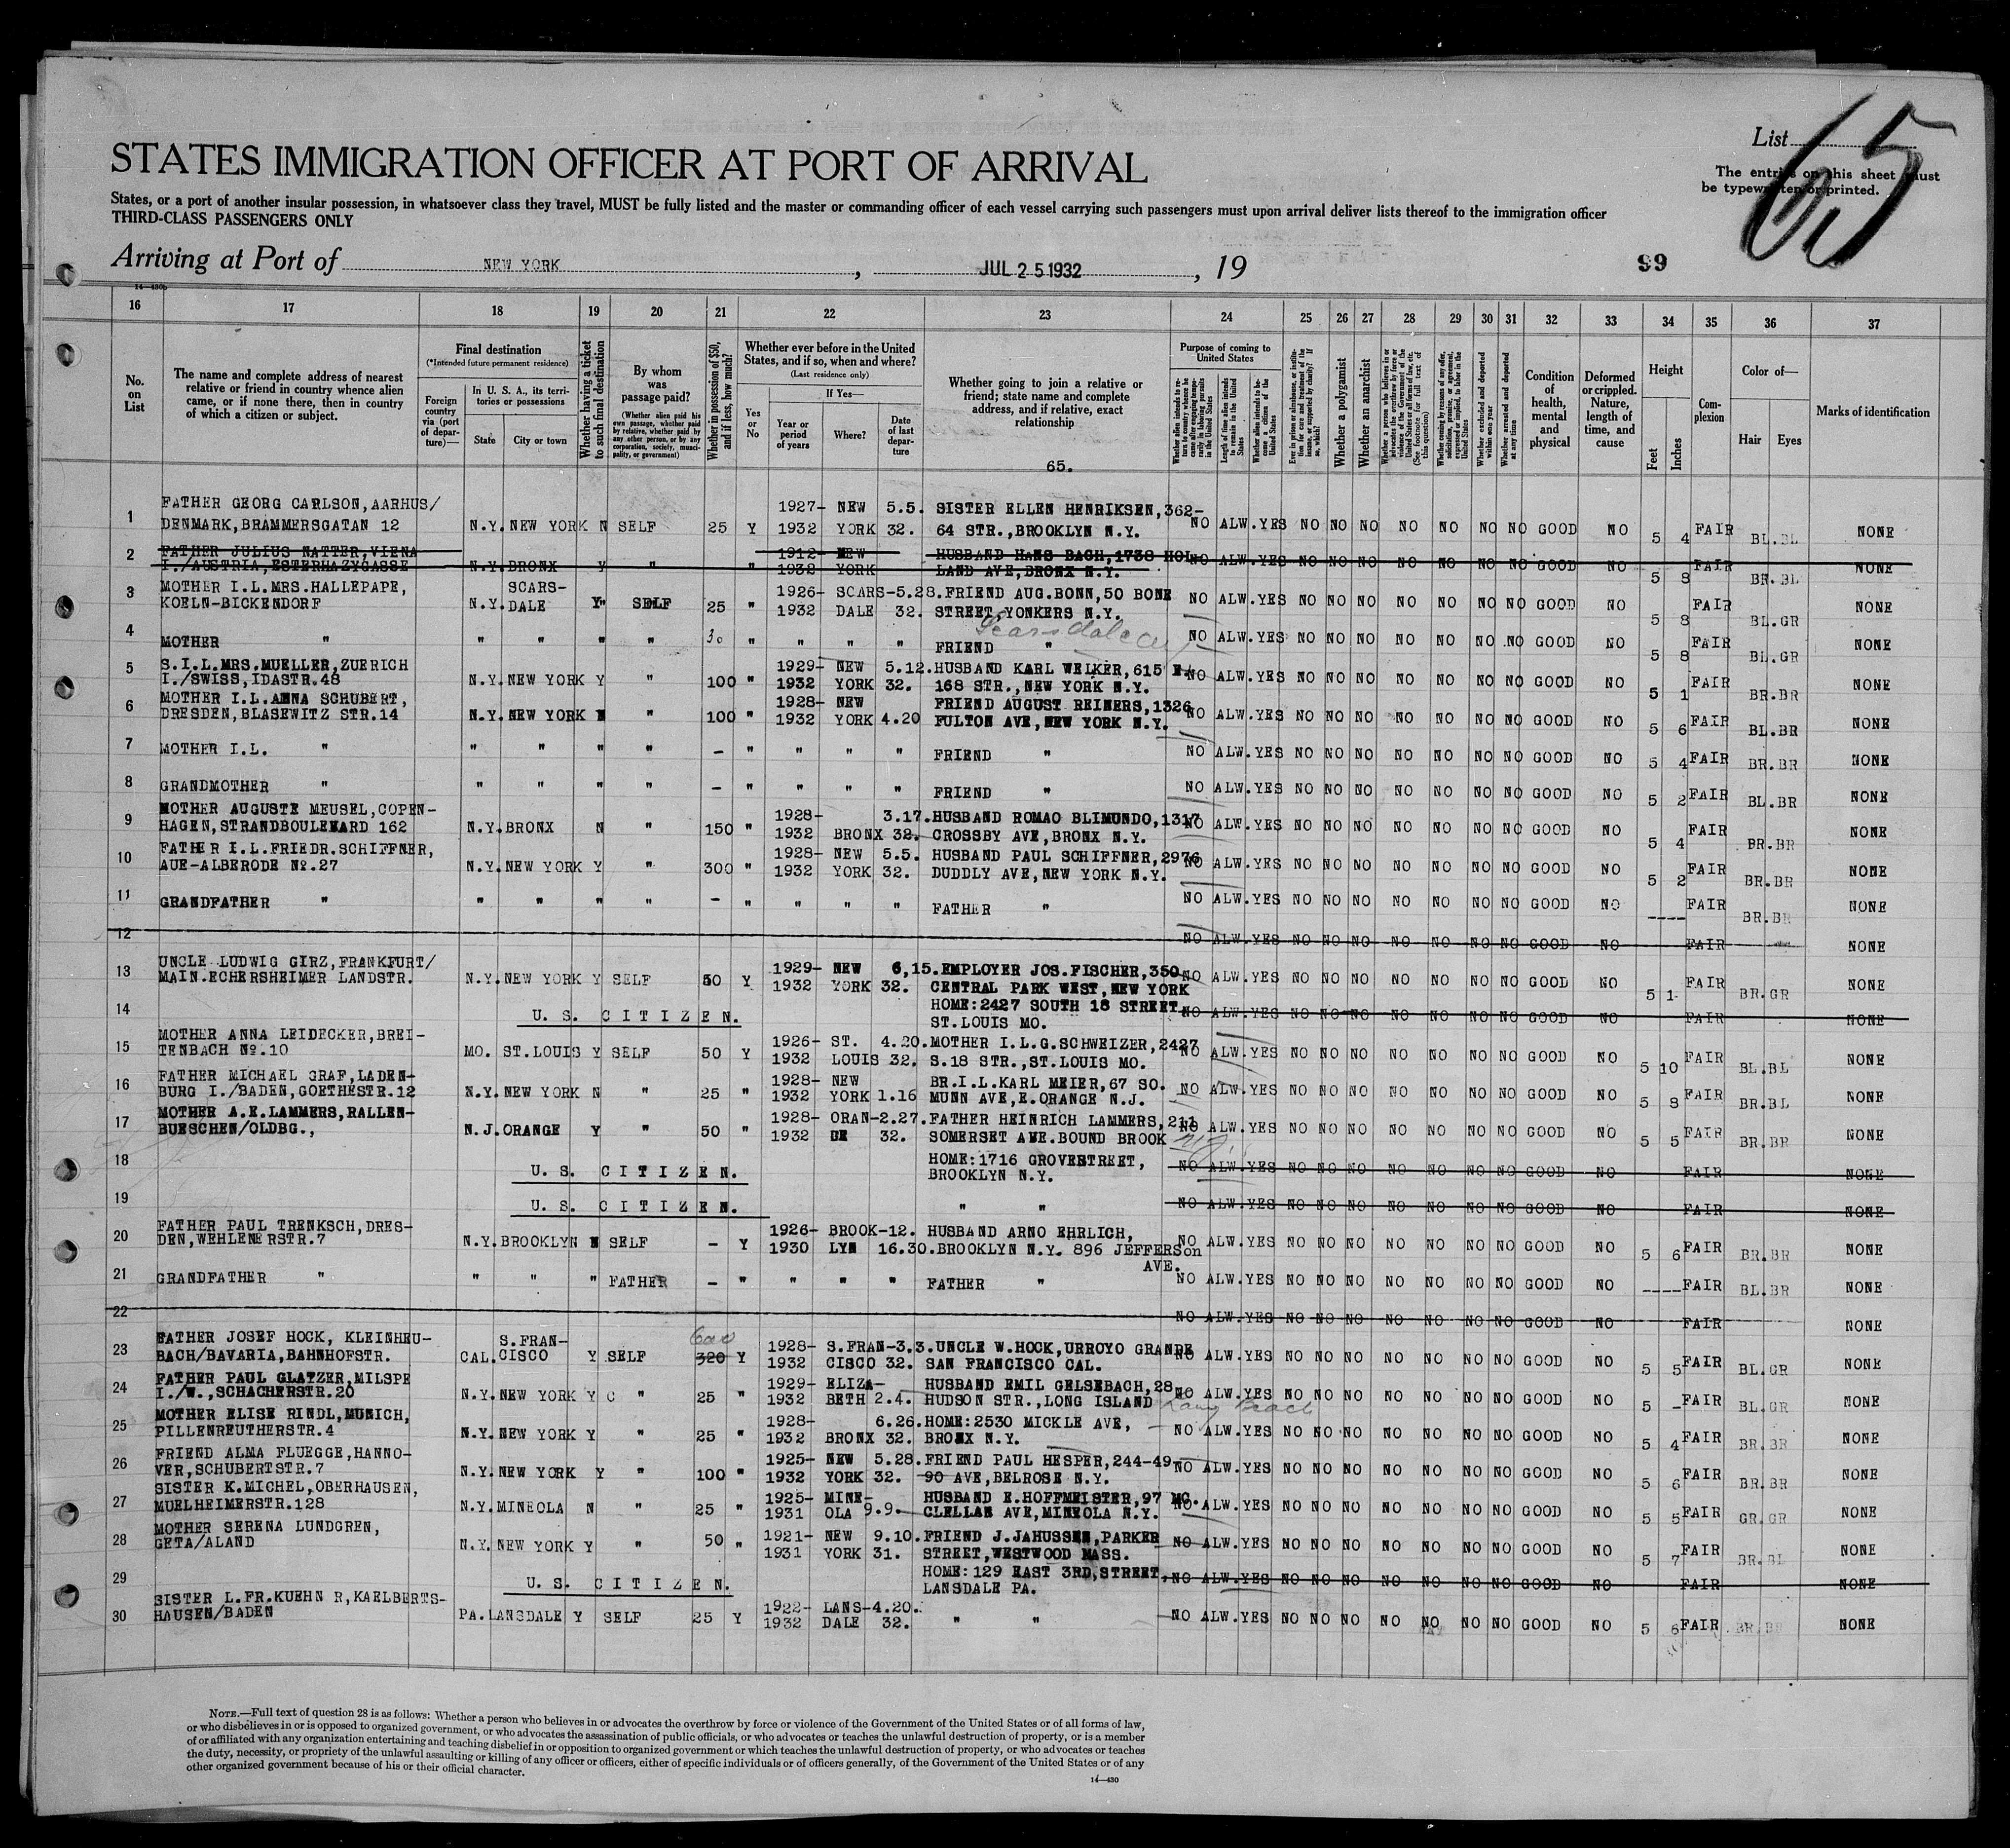 List 65
STATES IMMIGRATION OFFICER AT PORT OF ARRIVAL
The entries on this sheet must
be typewritten or printed.
States, or a port of another insular possession, in whatsoever class they travel, MUST be fully listed and the master or commanding officer of each vessel carrying such passengers must upon arrival deliver lists thereof to the immigration officer
THIRD-CLASS PASSENGERS ONLY
Arriving at Port of NEW YORK , JUL 25 1932 , 19 99
14—430b
16 17 18 19 20 21 22 23 24 25 26 27 28 29 30 31 32 33 34 35 36 37
No. on List
The name and complete address of nearest relative or friend in country whence alien came, or if none there, then in country of which a citizen or subject.
Final destination
(*Intended future permanent residence)
Foreign country via (port of departure)—
In U. S. A., its territories or possessions
State City or town
Whether having a ticket to such final destination
By whom was passage paid?
(Whether alien paid his own passage, whether paid by relative, whether paid by any other person, or by any corporation, society, municipality, or government)
Whether in possession of $50, and if less, how much?
Whether ever before in the United States, and if so, when and where?
(Last residence only)
Yes or No
If Yes—
Year or period of years Where? Date of last departure
Whether going to join a relative or friend; state name and complete address, and if relative, exact relationship
65.
Purpose of coming to United States
Whether alien intends to return to country whence he came after engaging temporarily in laboring pursuits in the United States
Length of time alien intends to remain in the United States
Whether alien intends to become a citizen of the United States
Ever in prison or almshouse, or institution for care and treatment of the insane, or supported by charity? If so, which?
Whether a polygamist
Whether an anarchist
Whether a person who believes in or advocates the overthrow by force or violence of the Government of the United States or all forms of law, etc. (See footnote for full text of this question)
Whether coming by reason of any offer, solicitation, promise, or agreement, expressed or implied, to labor in the United States
Whether excluded and deported within one year
Whether arrested and deported at any time
Condition of health, mental and physical
Deformed or crippled. Nature, length of time, and cause
Height
Feet Inches
Complexion
Color of—
Hair Eyes
Marks of identification
1 FATHER GEORG CARLSON,AARHUS/ 1927- NEW 5.5. SISTER ELLEN HENRIKSEN,362-
DENMARK,BRAMMERSGATAN 12 N.Y. NEW YORK N SELF 25 Y 1932 YORK 32. 64 STR.,BROOKLYN N.Y. NO ALW.YES NO NO NO NO NO NO NO GOOD NO 5 4 FAIR BL.BL NONE
2 FATHER JULIUS NATTER,VIENA 1912- NEW HUSBAND HANS BACH,1738 HOL
I./AUSTRIA,ESTERHAZYGASSE N.Y. BRONX Y " " 1932 YORK LAND AVE,BRONX N.Y. NO ALW.YES NO NO NO NO NO NO NO GOOD NO 5 8 FAIR BR.BL NONE
3 MOTHER I.L.MRS.HALLEPAPE, SCARS- 1926- SCARS-5.28. FRIEND AUG.BONN,50 BONE
KOELN-BICKENDORF N.Y. DALE Y" SELF 25 " 1932 DALE 32. STREET,YONKERS N.Y. NO ALW.YES NO NO NO NO NO NO NO GOOD NO 5 8 FAIR BL.GR NONE
4 MOTHER " " " " " 30 " " " " FRIEND " Scarsdale NO ALW.YES NO NO NO NO NO NO NO GOOD NO 5 8 FAIR BL.GR NONE
5 S.I.L.MRS.MUELLER,ZUERICH 1929- NEW 5.12. HUSBAND KARL WELKER,615 E.
I./SWISS,IDASTR.48 N.Y. NEW YORK Y " 100 " 1932 YORK 32. 168 STR.,NEW YORK N.Y. NO ALW.YES NO NO NO NO NO NO NO GOOD NO 5 1 FAIR BR.BR NONE
6 MOTHER I.L.ANNA SCHUBERT, 1928- NEW FRIEND AUGUST REINERS,1326
DRESDEN,BLASEWITZ STR.14 N.Y. NEW YORK N " 100 " 1932 YORK 4.20 FULTON AVE,NEW YORK N.Y. NO ALW.YES NO NO NO NO NO NO NO GOOD NO 5 6 FAIR BL.BR NONE
7 MOTHER I.L. " " " " " - " " " " FRIEND " NO ALW.YES NO NO NO NO NO NO NO GOOD NO 5 4 FAIR BR.BR NONE
8 GRANDMOTHER " " " " " - " " " " FRIEND " NO ALW.YES NO NO NO NO NO NO NO GOOD NO 5 2 FAIR BL.BR NONE
9 MOTHER AUGUSTE MEUSEL,COPEN- 1928- 3.17. HUSBAND ROMAO BLIMUNDO,1317
HAGEN,STRANDBOULEWARD 162 N.Y. BRONX N " 150 " 1932 BRONX 32. CROSSBY AVE,BRONX N.Y. NO ALW.YES NO NO NO NO NO NO NO GOOD NO 5 4 FAIR BR.BR NONE
10 FATHER I.L.FRIEDR.SCHIFFNER, 1928- NEW 5.5. HUSBAND PAUL SCHIFFNER,2976
AUE-ALBERODE No.27 N.Y. NEW YORK Y " 300 " 1932 YORK 32. DUDDLY AVE,NEW YORK N.Y. NO ALW.YES NO NO NO NO NO NO NO GOOD NO 5 2 FAIR BR.BR NONE
11 GRANDFATHER " " " " " - " " " " FATHER " NO ALW.YES NO NO NO NO NO NO NO GOOD NO ---- FAIR BR.BR NONE
12 NO ALW.YES NO NO NO NO NO NO NO GOOD NO FAIR NONE
13 UNCLE LUDWIG GIRZ,FRANKFURT/ 1929- NEW 6,15. EMPLOYER JOS.FISCHER,350
MAIN.ECHERSHEIMER LANDSTR. N.Y. NEW YORK Y SELF 50 Y 1932 YORK 32. CENTRAL PARK WEST,NEW YORK NO ALW.YES NO NO NO NO NO NO NO GOOD NO 5 1- FAIR BR.GR NONE
14 U. S. C I T I Z E N. HOME:2427 SOUTH 18 STREET
ST.LOUIS MO. NO ALW.YES NO NO NO NO NO NO NO GOOD NO FAIR NONE
15 MOTHER ANNA LEIDECKER,BREI- 1926- ST. 4.20. MOTHER I.L.G.SCHWEIZER,2427
TENBACH No.10 MO. ST.LOUIS Y SELF 50 Y 1932 LOUIS 32. S.18 STR.,ST.LOUIS MO. NO ALW.YES NO NO NO NO NO NO NO GOOD NO 5 10 FAIR BL.BL NONE
16 FATHER MICHAEL GRAF,LADEN- 1928- NEW BR.I.L.KARL MEIER,67 SO.
BURG I./BADEN,GOETHESTR.12 N.Y. NEW YORK N " 25 " 1932 YORK 1.16 MUNN AVE,E.ORANGE N.J. NO ALW.YES NO NO NO NO NO NO NO GOOD NO 5 8 FAIR BR.BL NONE
17 MOTHER A.E.LAMMERS,RALLEN- 1928- ORAN-2.27. FATHER HEINRICH LAMMERS,211
BUESCHEN/OLDBG., N.J. ORANGE Y " 50 " 1932 GE 32. SOMERSET AVE.BOUND BROOK N.J. NO ALW.YES NO NO NO NO NO NO NO GOOD NO 5 5 FAIR BR.BR NONE
18 U. S. C I T I Z E N. HOME:1716 GROVESTREET,
BROOKLYN N.Y. NO ALW.YES NO NO NO NO NO NO NO GOOD NO FAIR NONE
19 U. S. C I T I Z E N. " " NO ALW.YES NO NO NO NO NO NO NO GOOD NO FAIR NONE
20 FATHER PAUL TRENKSCH,DRES- 1926- BROOK-12. HUSBAND ARNO EHRLICH,
DEN,WEHLENERSTR.7 N.Y. BROOKLYN N SELF - Y 1930 LYN 16.30. BROOKLYN N.Y. 896 JEFFERSon
AVE. NO ALW.YES NO NO NO NO NO NO NO GOOD NO 5 6 FAIR BR.BR NONE
21 GRANDFATHER " " " " FATHER - " " " " FATHER " NO ALW.YES NO NO NO NO NO NO NO GOOD NO ---- FAIR BL.BR NONE
22 NO ALW.YES NO NO NO NO NO NO NO GOOD NO FAIR NONE
23 FATHER JOSEF HOCK, KLEINHEU- S.FRAN- 1928- S.FRAN-3.3. UNCLE W.HOCK,URROYO GRANDE
BACH/BAVARIA,BAHNHOFSTR. CAL. CISCO Y SELF 320 Y 1932 CISCO 32. SAN FRANCISCO CAL. NO ALW.YES NO NO NO NO NO NO NO GOOD NO 5 5 FAIR BL.GR NONE
24 FATHER PAUL GLATZER,MILSPE 1929- ELIZA- HUSBAND EMIL GELSEBACH,28
I./W.,SCHACHERSTR.20 N.Y. NEW YORK Y C " 25 " 1932 BETH 2.4. HUDSON STR.,LONG ISLAND Long Beach NO ALW.YES NO NO NO NO NO NO NO GOOD NO 5 - FAIR BL.GR NONE
25 MOTHER ELISE RINDL,MUNICH, 1928- 6.26. HOME:2530 MICKLE AVE,
PILLENREUTHERSTR.4 N.Y. NEW YORK Y " 25 " 1932 BRONX 32. BRONX N.Y. NO ALW.YES NO NO NO NO NO NO NO GOOD NO 5 4 FAIR BR.BR NONE
26 FRIEND ALMA FLUEGGE,HANNO- 1925- NEW 5.28. FRIEND PAUL HESPER,244-49
VER,SCHUBERTSTR.7 N.Y. NEW YORK Y " 100 " 1932 YORK 32. 90 AVE,BELROSE N.Y. NO ALW.YES NO NO NO NO NO NO NO GOOD NO 5 6 FAIR BR.BR NONE
27 SISTER K.MICHEL,OBERHAUSEN, 1925- MINE- HUSBAND E.HOFFMEISTER,97 MC.
MUELHEIMERSTR.128 N.Y. MINEOLA N " 25 " 1931 OLA 9.9. CLELLAN AVE,MINEOLA N.Y. NO ALW.YES NO NO NO NO NO NO NO GOOD NO 5 5 FAIR GR.GR NONE
28 MOTHER SERENA LUNDGREN, 1921- NEW 9.10. FRIEND J.JAHUSSEN,PARKER
GETA/ALAND N.Y. NEW YORK Y " 50 " 1931 YORK 31. STREET,WESTWOOD MASS. NO ALW.YES NO NO NO NO NO NO NO GOOD NO 5 7 FAIR BR.BL NONE
29 U. S. C I T I Z E N. HOME:129 EAST 3RD,STREET,
LANSDALE PA. NO ALW.YES NO NO NO NO NO NO NO GOOD NO FAIR NONE
30 SISTER L.FR.KUEHN R,KAELBERTS- 1922- LANS-4.20.
HAUSEN/BADEN PA. LANSDALE Y SELF 25 Y 1932 DALE 32. " " NO ALW.YES NO NO NO NO NO NO NO GOOD NO 5 6 FAIR BR.BR NONE
NOTE.—Full text of question 28 is as follows: Whether a person who believes in or advocates the overthrow by force or violence of the Government of the United States or of all forms of law,
or who disbelieves in or is opposed to organized government, or who advocates the assassination of public officials, or who advocates or teaches the unlawful destruction of property, or is a member
of or affiliated with any organization entertaining and teaching disbelief in or opposition to organized government or which teaches the unlawful destruction of property, or who advocates or teaches
the duty, necessity, or propriety of the unlawful assaulting or killing of any officer or officers, either of specific individuals or of officers generally, of the Government of the United States or of any
other organized government because of his or their official character.
14—430